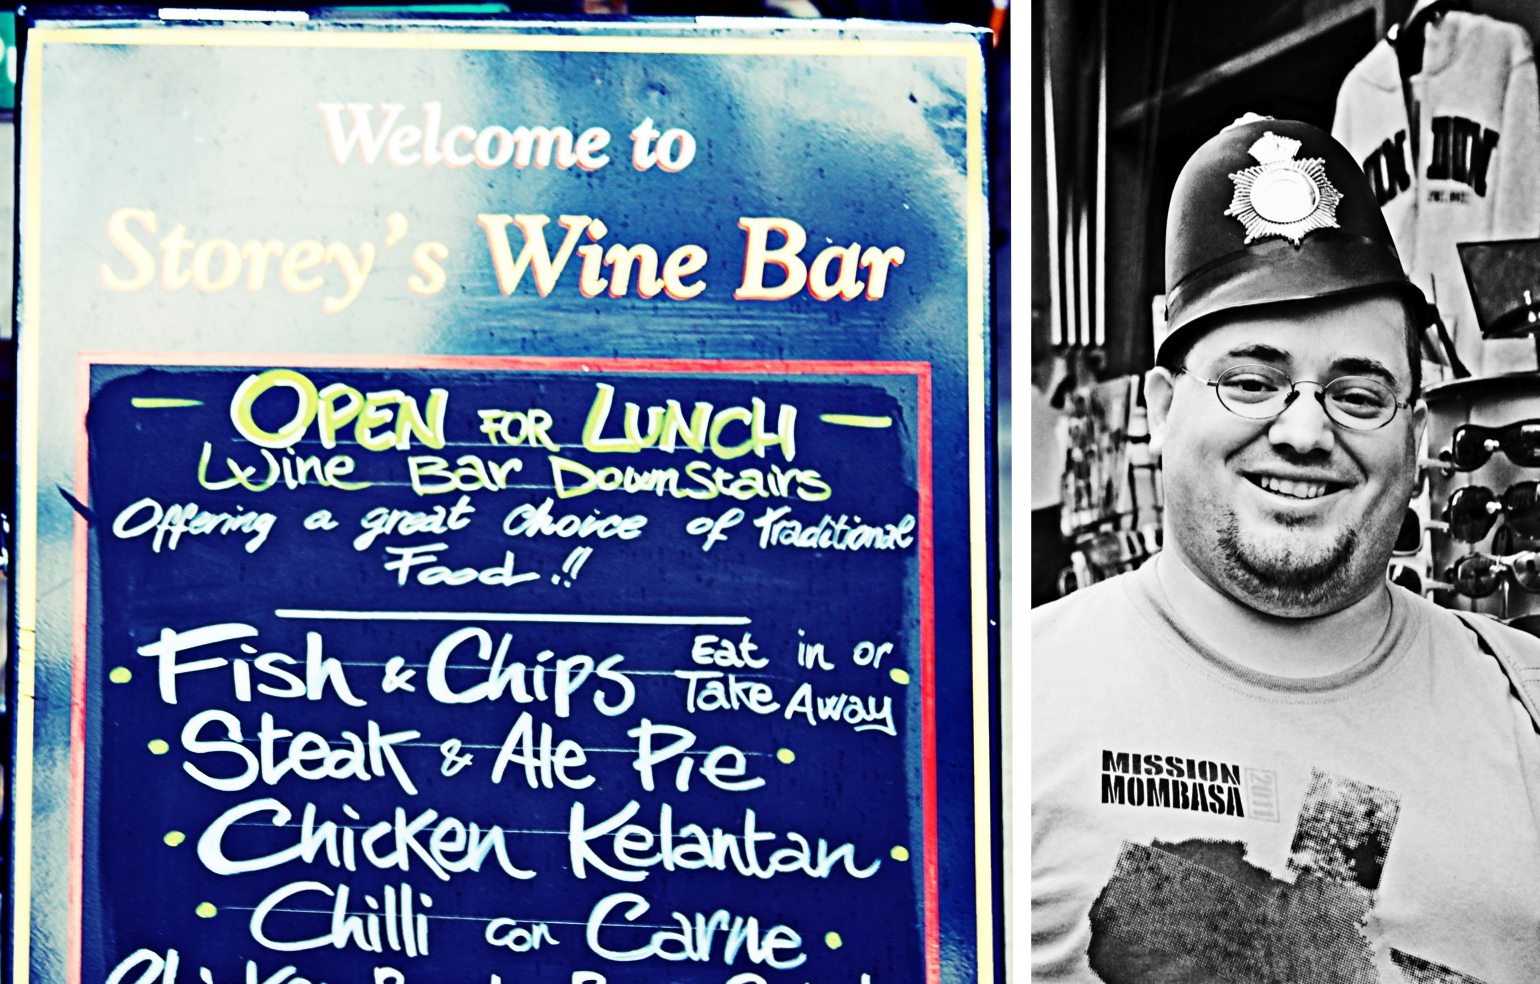 Welcome to
Storey's Wine Bar
OPEN FOR LUNCH
Wine Bar DownStairs
Offering a great choice of Traditional
Food!!
Fish & Chips Eat in or
Take Away
Steak & Ale Pie
Chicken Kelantan
Chilli con Carne
MISSION
MOMBASA
2011